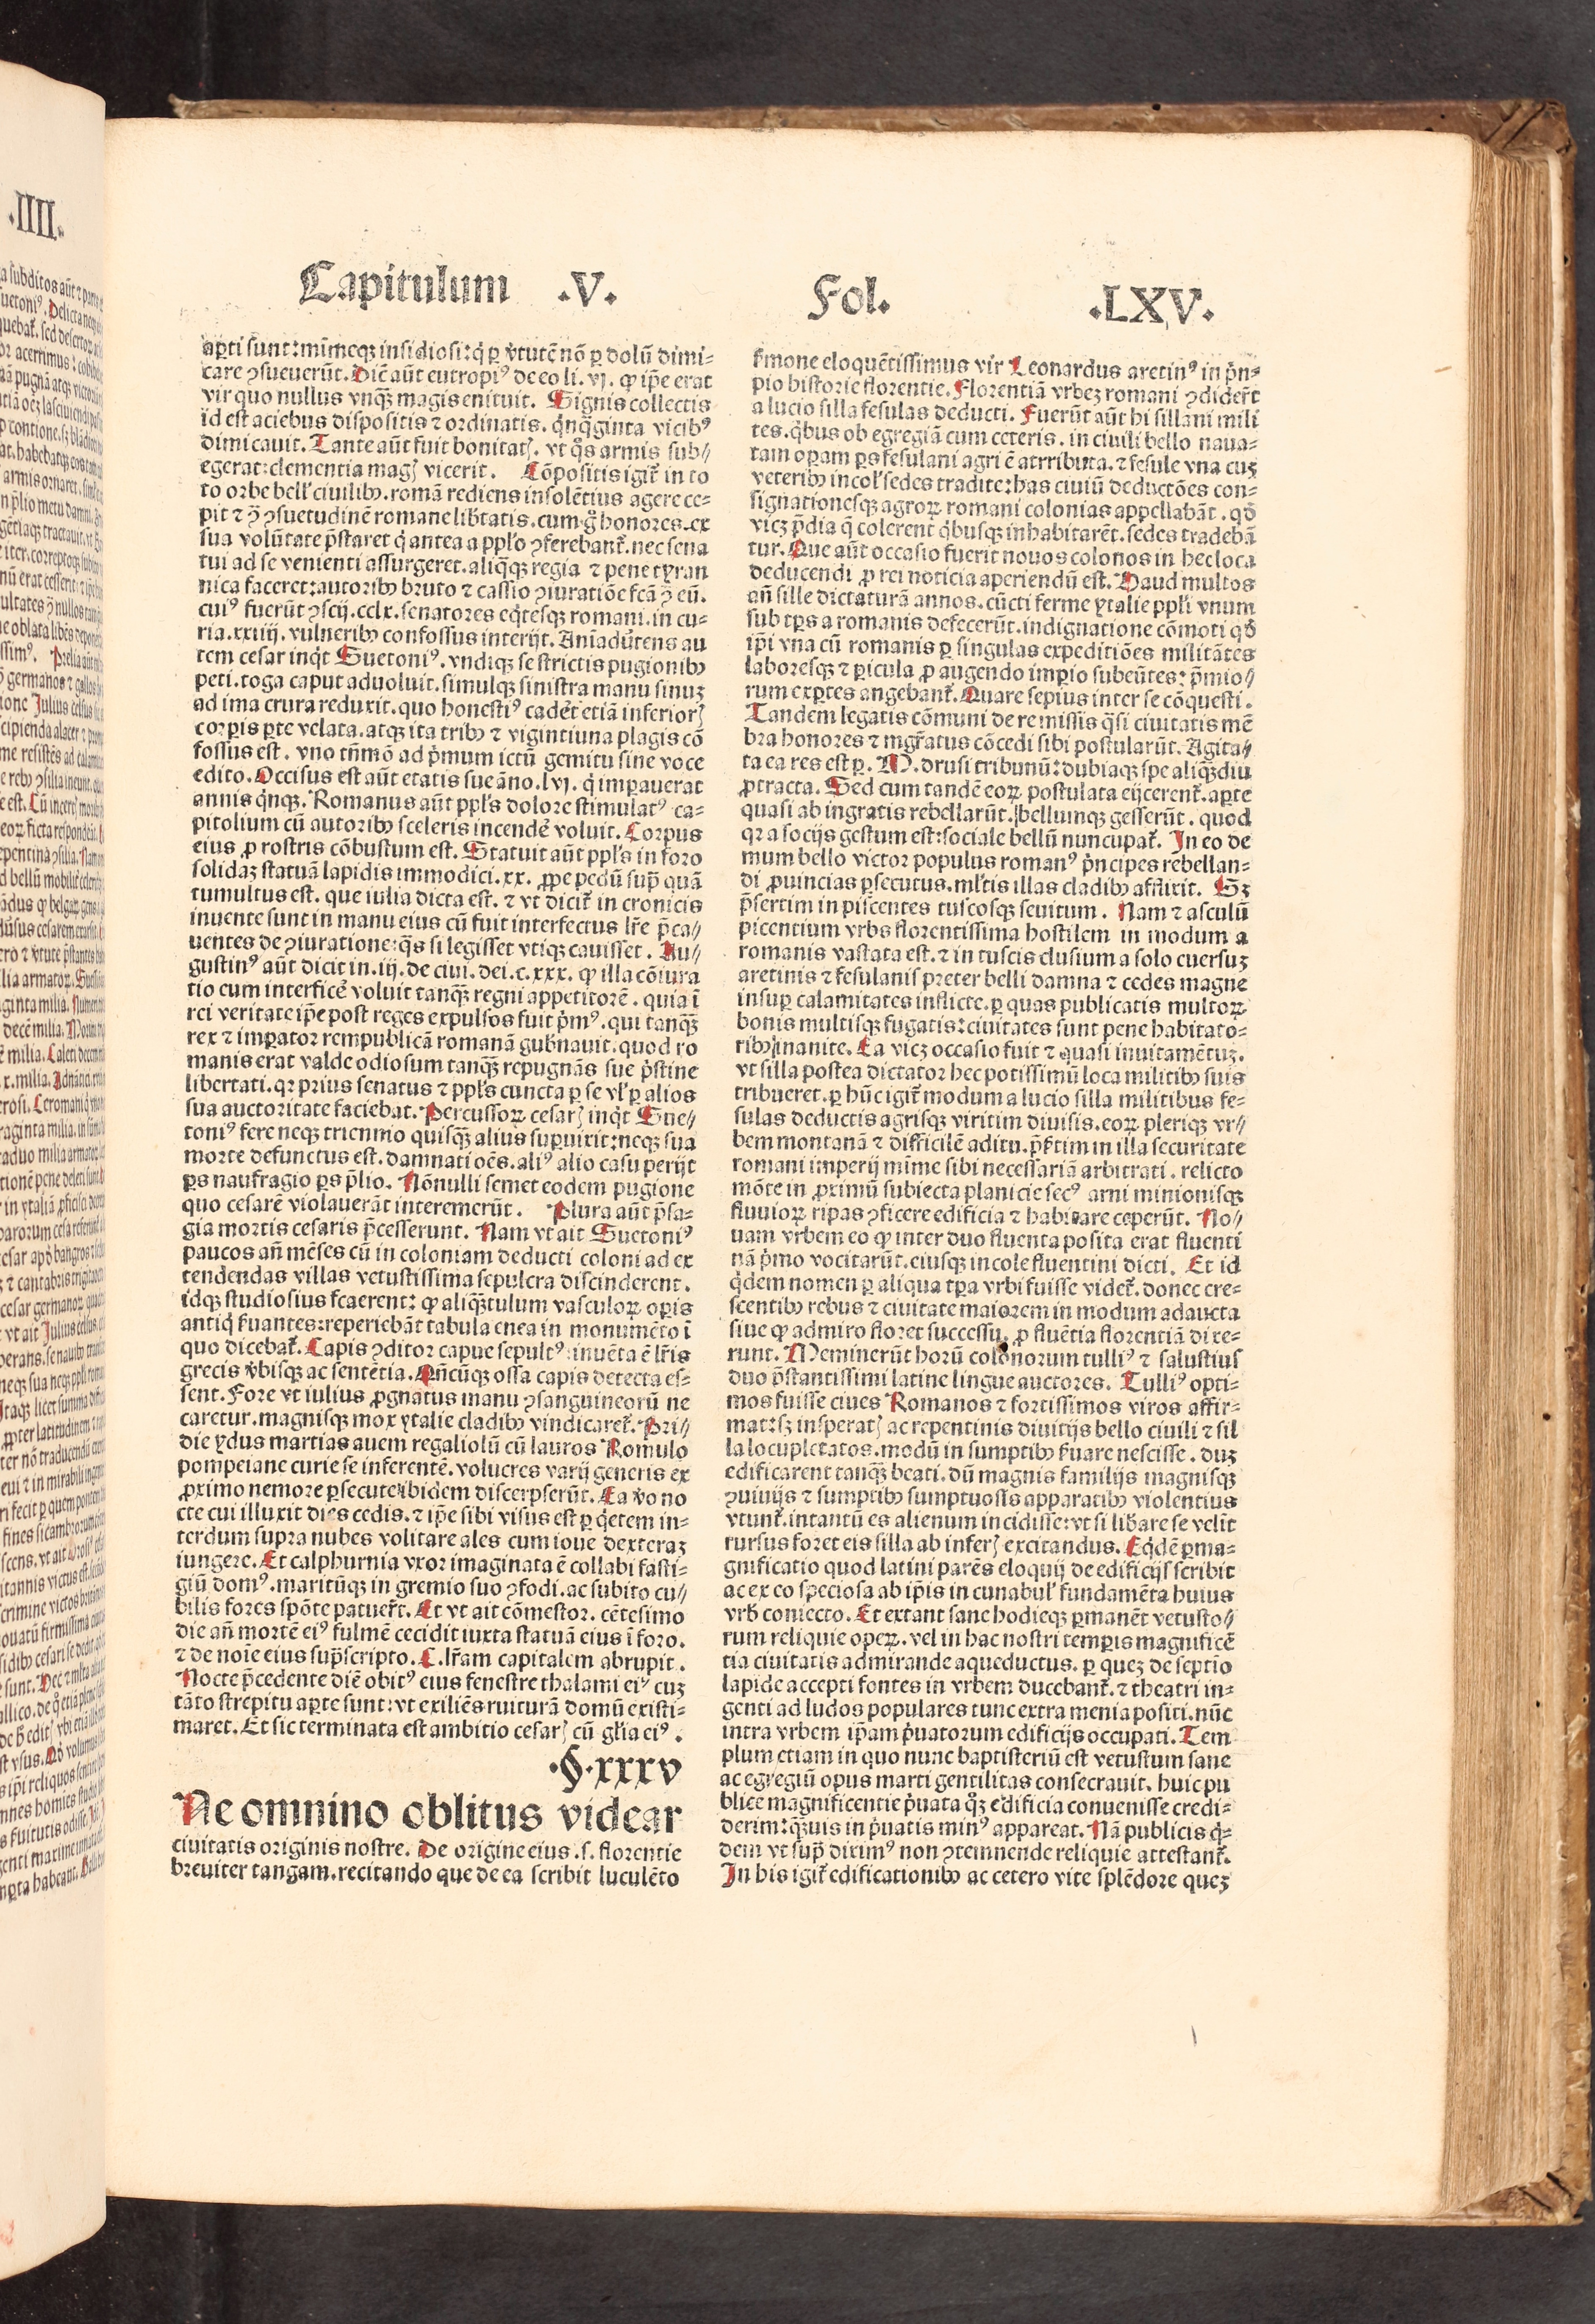 Capitulum .V. Fol. .LXV.
aꝑti sunt: mīmeqꝫ insidiosi: q̇ ꝑ v̓tutē nō ꝑ dolū dimi-
care ꝯsueuerūt. Diē aūt eutropiꝰ de eo li. vj. ꝙ ip̄e erat
vir quo nullus vnqꝫ magis enituit. Signis collectis
id est aciebus dispositis ⁊ ordinatis. q̇nq̄ginta vicibꝰ
dimicauit. Tante aūt fuit bonitatꝭ. vt q̇s armis sub//
egerat: clementia magꝭ vicerit. Cōpositis igit̓ in to
to orbe bell̓ ciuilibꝫ. romā rediens insolētius agere ce-
pit ⁊ ꝯ̄ ꝯsuetudinē romane lib̓tatis. cum g̊ honores ex
sua volūtate p̄staret q̇ antea a ppl̓o ꝯferebant̓. nec sena
tui ad se venienti assurgeret. aliq̄qꝫ regia ⁊ pene tyran
nica faceret: autoribꝫ bruto ⁊ cassio ꝯiuratiōe fcā ꝯ̄ eū.
cuiꝰ fuerūt ꝯscij. cclx. senatores eq̇tesqꝫ romani. in cu-
ria. xxiiij. vulneribꝫ confossus interijt. Anīadu̓tens au
tem cesar inq̇t Suetoniꝰ. vndiqꝫ se strictis pugionibꝫ
peti. toga caput aduoluit. simulqꝫ sinistra manu sinuꝫ
ad ima crura reduxit. quo honestiꝰ cadet̓ etiā inferiorꝭ
corꝑis ꝑte velata. atqꝫ ita tribꝫ ⁊ vigintiuna plagis cō
fossus est. vno tm̄mō ad p̓mum ictū gemitu sine voce
edito. Occisus est aūt etatis sue āno. lvj. q̇ imꝑauerat
annis q̇nqꝫ. Romanus aūt ppl̓s dolore stimulatꝰ ca-
pitolium cū autoribꝫ sceleris incende̓ voluit. Corpus
eius ꝓ rostris cōbustum est. Statuit aūt ppl̓s in foro
solidaꝫ statuā lapidis immodici. xx. ꝓpe pedū sup̄ quā
tumultus est. que iulia dicta est. ⁊ vt dicit̓ in cronicis
inuente sunt in manu eius cū fuit interfectus lr̄e p̄ca//
uentes de ꝯiuratione: q̇s si legisset vtiqꝫ cauisset. Au//
gustinꝰ aūt dicit in. iij. de ciui. dei. c. xxx. ꝙ illa cōiura
tio cum interfice̓ voluit tanqꝫ regni appetitorē. quia ī
rei veritate ip̄e post reges expulsos fuit p̓mꝰ. qui tanqꝫ
rex ⁊ imꝑator rempublicā romanā gub̓nauit. quod ro
manis erat valde odiosum tanqꝫ repugnās sue p̓stine
libertati. qꝛ prius senatus ⁊ ppl̓s cuncta ꝑ se vl̓ ꝑ alios
sua auctoritate faciebat. Percussoꝝ cesarꝭ inq̇t Sue-
toniꝰ fere neqꝫ triennio quisqꝫ alius suꝑuixit: neqꝫ sua
morte defunctus est. damnati oēs. aliꝰ alio casu perijt
ꝑs naufragio ꝑs p̄lio. Nōnulli semet eodem pugione
quo cesarē violauerāt interemerūt. Plura aūt p̄sa-
gia mortis cesaris p̄cesserunt. Nam vt ait Suetoniꝰ
paucos añ mēses cū in coloniam deducti coloni ad ex
tendendas villas vetustissima sepulcra discinderent.
idqꝫ studiosius fcaerent: ꝙ aliqꝫtulum vasculoꝝ oꝑis
antiq̇ s̓uantes: reperiebāt tabula enea in monumēto ī
quo dicebat̓. Capis ꝯditor capue sepultꝰ: inuēta ē lr̄is
grecis v̓bisqꝫ ac sentētia. Qn̄cūqꝫ ossa capis detecta es-
sent. Fore vt iulius ꝓgnatus manu ꝯsanguineorū ne
caretur. magnisqꝫ mox ytalie cladibꝫ vindicaret̓. Pri//
die ydus martias auem regaliolū cū lauros Romulo
pompeiane curie se inferentē. volucres varij generis ex
ꝓximo nemore ꝑsecute ibidem discerpserūt. Ea v̓o no
cte cui illuxit dies cedis. ⁊ ip̄e sibi visus est ꝑ q̇etem in-
terdum supra nubes volitare ales cum ioue dexteraꝫ
iungere. Et calphurnia vxor imaginata ē collabi fasti-
giū domꝰ. maritūqꝫ in gremio suo ꝯfodi. ac subito cu//
bilis fores spōte patuer̄t. Et vt ait cōmestor. cētesimo
die añ mortē eiꝰ fulmē cecidit iuxta statuā eius ī foro.
⁊ de noīe eius sup̄scripto. C. lr̄am capitalem abrupit.
Nocte p̄cedente diē obitꝰ eius fenestre thalami eiꝰ cuꝫ
tāto strepitu aꝑte sunt: vt exiliēs ruiturā domū existi-
maret. Et sic terminata est ambitio cesarꝭ cū gl̓ia eiꝰ.
.§.xxxv
Ne omnino oblitus videar
ciuitatis originis nostre. De origine eius .s. florentie
breuiter tangam. recitando que de ea scribit luculēto
s̓mone eloquētissimus vir Leonardus aretinꝰ in p̓n-
pio historie florentie. Florentiā vrbeꝫ romani ꝯdider̄t
a lucio silla fesulas deducti. Fuerūt aūt hi sillani mili
tes. q̇bus ob egregiā cum ceteris. in ciuili bello naua-
tam oꝑam ꝑs fesulani agri ē atrributa. ⁊ fesule vna cuꝫ
veteribꝫ incol̓ sedes tradite: has ciuiū deductōes con-
signationesqꝫ agroꝝ romani colonias appellabāt. qd̓
vicꝫ p̄dia q̄ colerent q̇busqꝫ inhabitarēt. sedes tradebā
tur. Que aūt occasio fuerit nouos colonos in hec loca
deducendi ꝓ rei noticia aperiendū est. Haud multos
añ sille dictaturā annos. cūcti ferme ytalie ppl̓i vnum
sub tꝑs a romanis defecerūt. indignatione cōmoti qd̓
ip̄i vna cū romanis ꝑ singulas expeditiōes militātes
laboresqꝫ ⁊ ꝑicula ꝓ augendo imꝑio subeūtes: p̄mio//
rum exꝑtes angebant̓. Quare sepius inter se cōquesti.
Tandem legatis cōmuni de re missis q̇si ciuitatis mē
bra honores ⁊ mgr̄atus cōcedi sibi postularūt. Agita//
ta ea res est ꝑ. M. drusi tribunū: dubiaqꝫ spe aliqꝫdiu
ꝓtracta. Sed cum tandē eoꝝ postulata eijcerent̓. aꝑte
quasi ab ingratis rebellarūt. bellumqꝫ gesserūt. quod
qꝛ a socijs gestum est: sociale bellū nuncupat̓. In eo de
mum bello victor populus romanꝰ p̓ncipes rebellan-
di ꝓuincias ꝑsecutus. ml̓tis illas cladibꝫ afflixit. Sꝫ
p̄sertim in piscentes tuscosqꝫ seuitum. Nam ⁊ asculū
picentium vrbs florentissima hostilem in modum a
romanis vastata est. ⁊ in tuscis clusium a solo euersuꝫ
aretinis ⁊ fesulanis preter belli damna ⁊ cedes magne
insuꝑ calamitates inflicte. ꝑ quas publicatis multoꝝ
bonis multisqꝫ fugatis: ciuitates sunt pene habitato-
ribꝫ inanite. Ea vicꝫ occasio fuit ⁊ quasi inuitamētuꝫ.
vt silla postea dictator hec potissimū loca militibꝫ suis
tribueret. ꝑ hūc igit̓ modum a lucio silla militibus fe-
sulas deductis agrisqꝫ viritim diuisis. eoꝝ pleriqꝫ vr//
bem montanā ⁊ difficilē aditu. p̄s̓tim in illa securitate
romani imperij mime sibi necessariā arbitrati. relicto
mōte in ꝓximū subiecta planicie secꝰ arni minionisqꝫ
fluuioꝝ ripas ꝯficere edificia ⁊ habitare ceperūt. No//
uam vrbem eo ꝙ inter duo fluenta posita erat fluenti
nā p̓mo vocitarūt. eiusqꝫ incole fluentini dicti. Et id
q̇dem nomen ꝑ aliqua tꝑa vrbi fuisse videt̓. donec cre-
scentibꝫ rebus ⁊ ciuitate maiorem in modum adaucta
siue ꝙ admiro floret successu. ꝓ fluētia florentiā dixe-
runt. Meminerūt horū colonorum tulliꝰ ⁊ salustius
duo p̄stantissimi latine lingue auctores. Tulliꝰ opti-
mos fuisse ciues Romanos ⁊ fortissimos viros affir-
mat: sꝫ insperatꝭ ac repentinis diuitijs bello ciuili ⁊ sil
la locupletatos. modū in sumptibꝫ s̓uare nescisse. duꝫ
edificarent tanqꝫ beati. dū magnis familijs magnisqꝫ
ꝯuiuijs ⁊ sumptibꝫ sumptuosis apparatibꝫ violentius
vtunt̓. intantū es alienum incidisse: vt si lib̓are se velīt
rursus foret eis silla ab inferꝭ excitandus. Eq̇dē ꝑma-
gnificatio quod latini parēs eloquij de edificijs scribit
ac ex eo speciosa ab ip̄is in cunabul̓ fundamēta huius
vrb̓ coniecto. Et extant sane hodieqꝫ ꝑmanēt vetusto//
rum reliquie opeꝝ. vel in hac nostri temꝑis magnificē
tia ciuitatis admirande aqueductus. ꝑ queꝫ de septīo
lapide accepti fontes in vrbem ducebant̓. ⁊ theatri in-
genti ad ludos populares tunc extra menia positi. nūc
intra vrbem ip̄am p̓uatorum edificijs occupati. Tem
plum etiam in quo nunc baptisteriū est vetustum sane
ac egregiū opus marti gentilitas consecrauit. huic pu
blice magnificentie p̓uata qꝫ edificia conuenisse credi-
derim: qꝫuis in p̓uatis minꝰ appareat. Nā publicis q̇-
dem vt sup̄ diximꝰ non ꝯtemnende reliquie attestant̓.
In his igit̓ edificationibꝫ ac cetero vite splēdore queꝫ